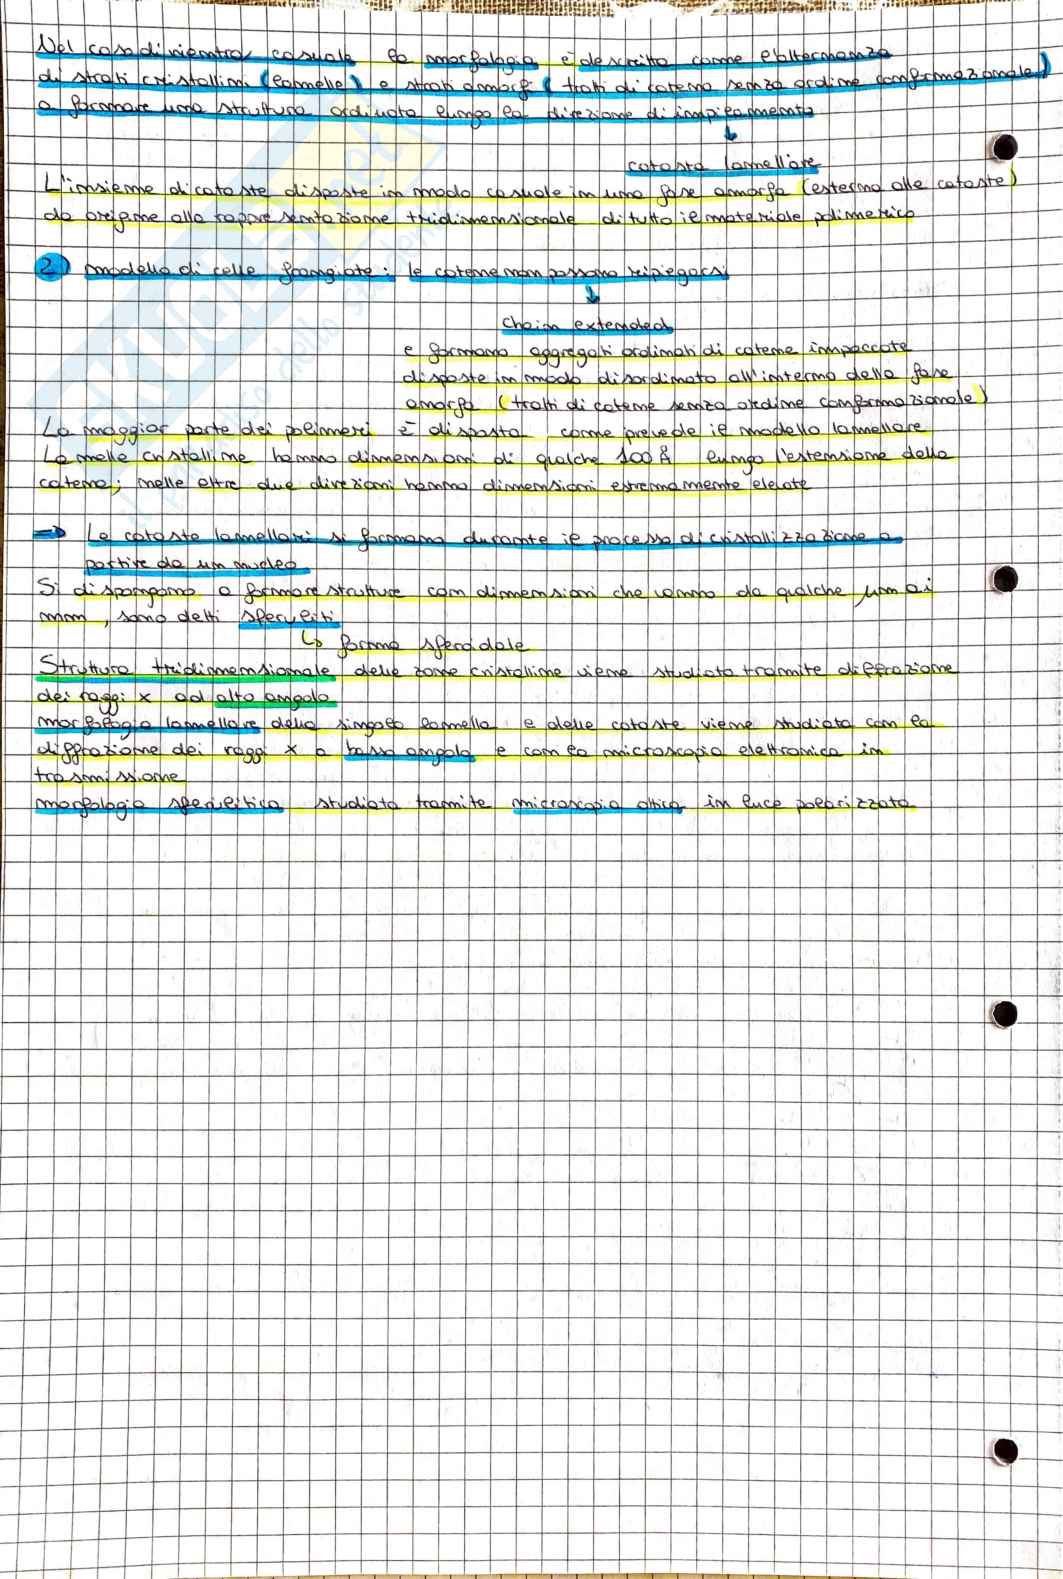 Nel caso di rientro casuale la morfologia è descritta come l'alternanza
di strati cristallini (lamelle) e strati amorfi (tratti di catena senza ordine conformazionale)
a formare una struttura ordinata lungo la direzione di impilamento
↓
catasta lamellare
L'insieme di cataste disposte in modo casuale in una fase amorfa (esterna alle cataste)
da origine alla rappresentazione tridimensionale di tutto il materiale polimerico
2) modello di celle frangiate: le catene non possono ripiegarsi
↓
chain extended
e formano aggregati ordinati di catene impaccate
disposte in modo disordinato all'interno della fase
amorfa (tratti di catene senza ordine conformazionale)
La maggior parte dei polimeri è disposta come prevede il modello lamellare
Lamelle cristalline hanno dimensioni di qualche 100 Å lungo l'estensione della
catena; nelle altre due direzioni hanno dimensioni estremamente elevate
⇒ Le cataste lamellari si formano durante il processo di cristallizzazione a
partire da un nucleo
Si dispongono a formare strutture con dimensioni che vanno da qualche μm ai
mm, sono detti sferuliti
↳ forma sferoidale
Struttura tridimensionale delle zone cristalline viene studiata tramite diffrazione
dei raggi x ad alto angolo
morfologia lamellare della singola lamella e delle cataste viene studiata con la
diffrazione dei raggi x a basso angolo e con la microscopia elettronica in
trasmissione
morfologia sferulitica studiata tramite microscopia ottica in luce polarizzata